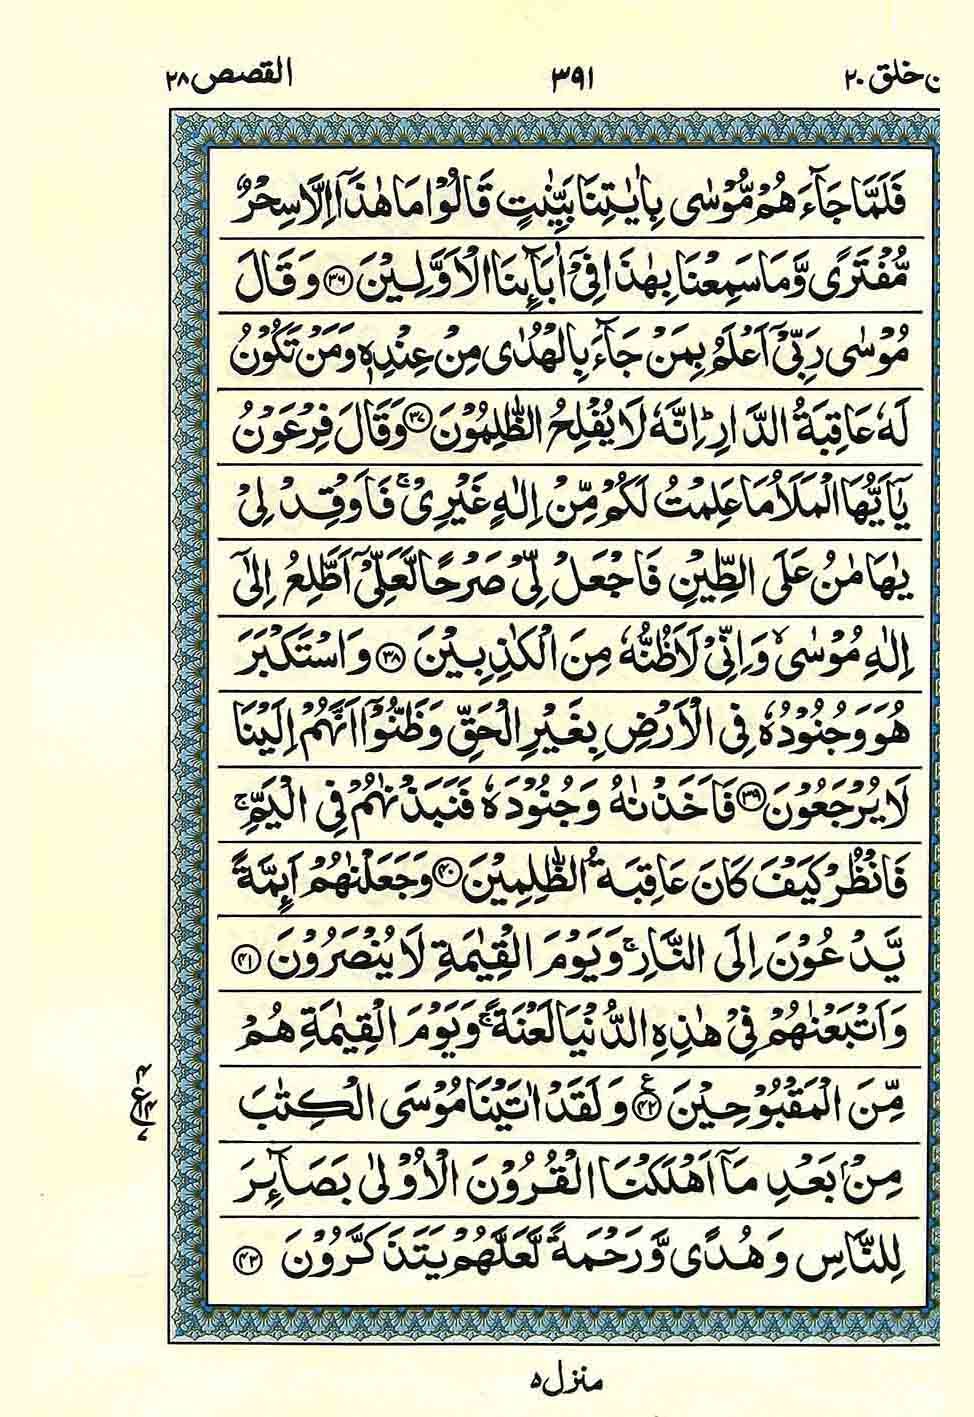 ن خلق ٢٠
٣٩١
القصص ٢٨
فَلَمَّا جَآءَهُمْ مُّوْسٰى بِاٰيٰتِنَا بَيِّنٰتٍ قَالُوْا مَا هٰذَآ اِلَّا سِحْرٌ
مُّفْتَرًى وَّمَا سَمِعْنَا بِهٰذَا فِيْٓ اٰبَآىِٕنَا الْاَوَّلِيْنَ ۝٣٦ وَقَالَ
مُوْسٰى رَبِّيْٓ اَعْلَمُ بِمَنْ جَآءَ بِالْهُدٰى مِنْ عِنْدِهٖ وَمَنْ تَكُوْنُ
لَهٗ عَاقِبَةُ الدَّارِ ؕ اِنَّهٗ لَا يُفْلِحُ الظّٰلِمُوْنَ ۝٣٧ وَقَالَ فِرْعَوْنُ
يٰٓاَيُّهَا الْمَلَاُ مَا عَلِمْتُ لَكُمْ مِّنْ اِلٰهٍ غَيْرِيْ ۚ فَاَوْقِدْ لِيْ
يٰهَامٰنُ عَلَى الطِّيْنِ فَاجْعَلْ لِّيْ صَرْحًا لَّعَلِّيْٓ اَطَّلِعُ اِلٰٓى
اِلٰهِ مُوْسٰى ۙ وَاِنِّيْ لَاَظُنُّهٗ مِنَ الْكٰذِبِيْنَ ۝٣٨ وَاسْتَكْبَرَ
هُوَ وَجُنُوْدُهٗ فِي الْاَرْضِ بِغَيْرِ الْحَقِّ وَظَنُّوْٓا اَنَّهُمْ اِلَيْنَا
لَا يُرْجَعُوْنَ ۝٣٩ فَاَخَذْنٰهُ وَجُنُوْدَهٗ فَنَبَذْنٰهُمْ فِي الْيَمِّ ۚ
فَانْظُرْ كَيْفَ كَانَ عَاقِبَةُ الظّٰلِمِيْنَ ۝٤٠ وَجَعَلْنٰهُمْ اَىِٕمَّةً
يَّدْعُوْنَ اِلَى النَّارِ ۚ وَيَوْمَ الْقِيٰمَةِ لَا يُنْصَرُوْنَ ۝٤١
وَاَتْبَعْنٰهُمْ فِيْ هٰذِهِ الدُّنْيَا لَعْنَةً ۚ وَيَوْمَ الْقِيٰمَةِ هُمْ
مِّنَ الْمَقْبُوْحِيْنَ ۝٤٢ ع وَلَقَدْ اٰتَيْنَا مُوْسَى الْكِتٰبَ
مِنْۢ بَعْدِ مَآ اَهْلَكْنَا الْقُرُوْنَ الْاُوْلٰى بَصَآىِٕرَ
لِلنَّاسِ وَهُدًى وَّرَحْمَةً لَّعَلَّهُمْ يَتَذَكَّرُوْنَ ۝٤٣
منزل ٥